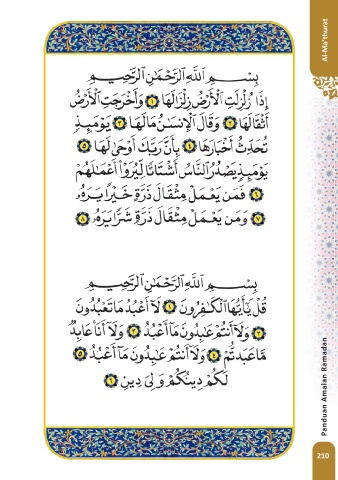 Al-Ma'thurat
بِسْمِ اللَّهِ الرَّحْمَٰنِ الرَّحِيمِ
إِذَا زُلْزِلَتِ الْأَرْضُ زِلْزَالَهَا ١ وَأَخْرَجَتِ الْأَرْضُ
أَثْقَالَهَا ٢ وَقَالَ الْإِنسَٰنُ مَا لَهَا ٣ يَوْمَئِذٍ
تُحَدِّثُ أَخْبَارَهَا ٤ بِأَنَّ رَبَّكَ أَوْحَىٰ لَهَا ٥
يَوْمَئِذٍ يَصْدُرُ النَّاسُ أَشْتَاتًا لِّيُرَوْا أَعْمَٰلَهُمْ
٦ فَمَن يَعْمَلْ مِثْقَالَ ذَرَّةٍ خَيْرًا يَرَهُ
٧ وَمَن يَعْمَلْ مِثْقَالَ ذَرَّةٍ شَرًّا يَرَهُ ٨
بِسْمِ اللَّهِ الرَّحْمَٰنِ الرَّحِيمِ
قُلْ يَٰٓأَيُّهَا الْكَٰفِرُونَ ١ لَآ أَعْبُدُ مَا تَعْبُدُونَ
٢ وَلَآ أَنتُمْ عَٰبِدُونَ مَآ أَعْبُدُ ٣ وَلَآ أَنَا۠ عَابِدٌ
مَّا عَبَدتُّمْ ٤ وَلَآ أَنتُمْ عَٰبِدُونَ مَآ أَعْبُدُ ٥
لَكُمْ دِينُكُمْ وَلِىَ دِينِ ٦
Panduan Amalan Ramadan
210